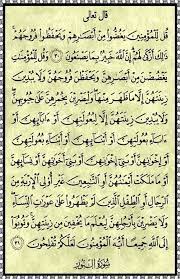 قال تعالى
قُل لِّلْمُؤْمِنِينَ يَغُضُّوا۟ مِنْ أَبْصَٰرِهِمْ وَيَحْفَظُوا۟ فُرُوجَهُمْ
ذَٰلِكَ أَزْكَىٰ لَهُمْ إِنَّ ٱللَّهَ خَبِيرٌۢ بِمَا يَصْنَعُونَ ٣٠ وَقُل لِّلْمُؤْمِنَٰتِ
يَغْضُضْنَ مِنْ أَبْصَٰرِهِنَّ وَيَحْفَظْنَ فُرُوجَهُنَّ وَلَا يُبْدِينَ
زِينَتَهُنَّ إِلَّا مَا ظَهَرَ مِنْهَا وَلْيَضْرِبْنَ بِخُمُرِهِنَّ عَلَىٰ جُيُوبِهِنَّ
وَلَا يُبْدِينَ زِينَتَهُنَّ إِلَّا لِبُعُولَتِهِنَّ أَوْ ءَابَآئِهِنَّ أَوْ
ءَابَآءِ بُعُولَتِهِنَّ أَوْ أَبْنَآئِهِنَّ أَوْ أَبْنَآءِ بُعُولَتِهِنَّ
أَوْ إِخْوَٰنِهِنَّ أَوْ بَنِىٓ إِخْوَٰنِهِنَّ أَوْ بَنِىٓ أَخَوَٰتِهِنَّ أَوْ نِسَآئِهِنَّ
أَوْ مَا مَلَكَتْ أَيْمَٰنُهُنَّ أَوِ ٱلتَّٰبِعِينَ غَيْرِ أُو۟لِى ٱلْإِرْبَةِ مِنَ
ٱلرِّجَالِ أَوِ ٱلطِّفْلِ ٱلَّذِينَ لَمْ يَظْهَرُوا۟ عَلَىٰ عَوْرَٰتِ ٱلنِّسَآءِ
وَلَا يَضْرِبْنَ بِأَرْجُلِهِنَّ لِيُعْلَمَ مَا يُخْفِينَ مِن زِينَتِهِنَّ وَتُوبُوٓا۟
إِلَى ٱللَّهِ جَمِيعًا أَيُّهَ ٱلْمُؤْمِنُونَ لَعَلَّكُمْ تُفْلِحُونَ ٣١
سُورَةُ النُّور